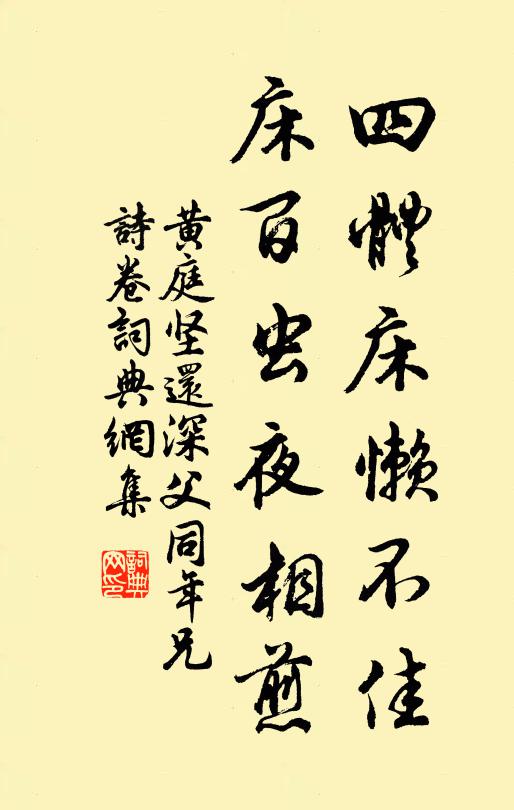 四體床懶不佳
床百虫夜相煎
黄庭坚還深父同年兄
詩卷詞典網集
詞典
网印